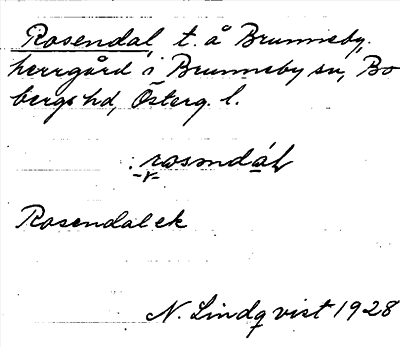 Rosendal, t. å Brunneby,
herrgård i Brunneby sn, Bo
bergs hd, Österg. l.
rosndál
-r-
Rosendal ek
N. Lindqvist 1928